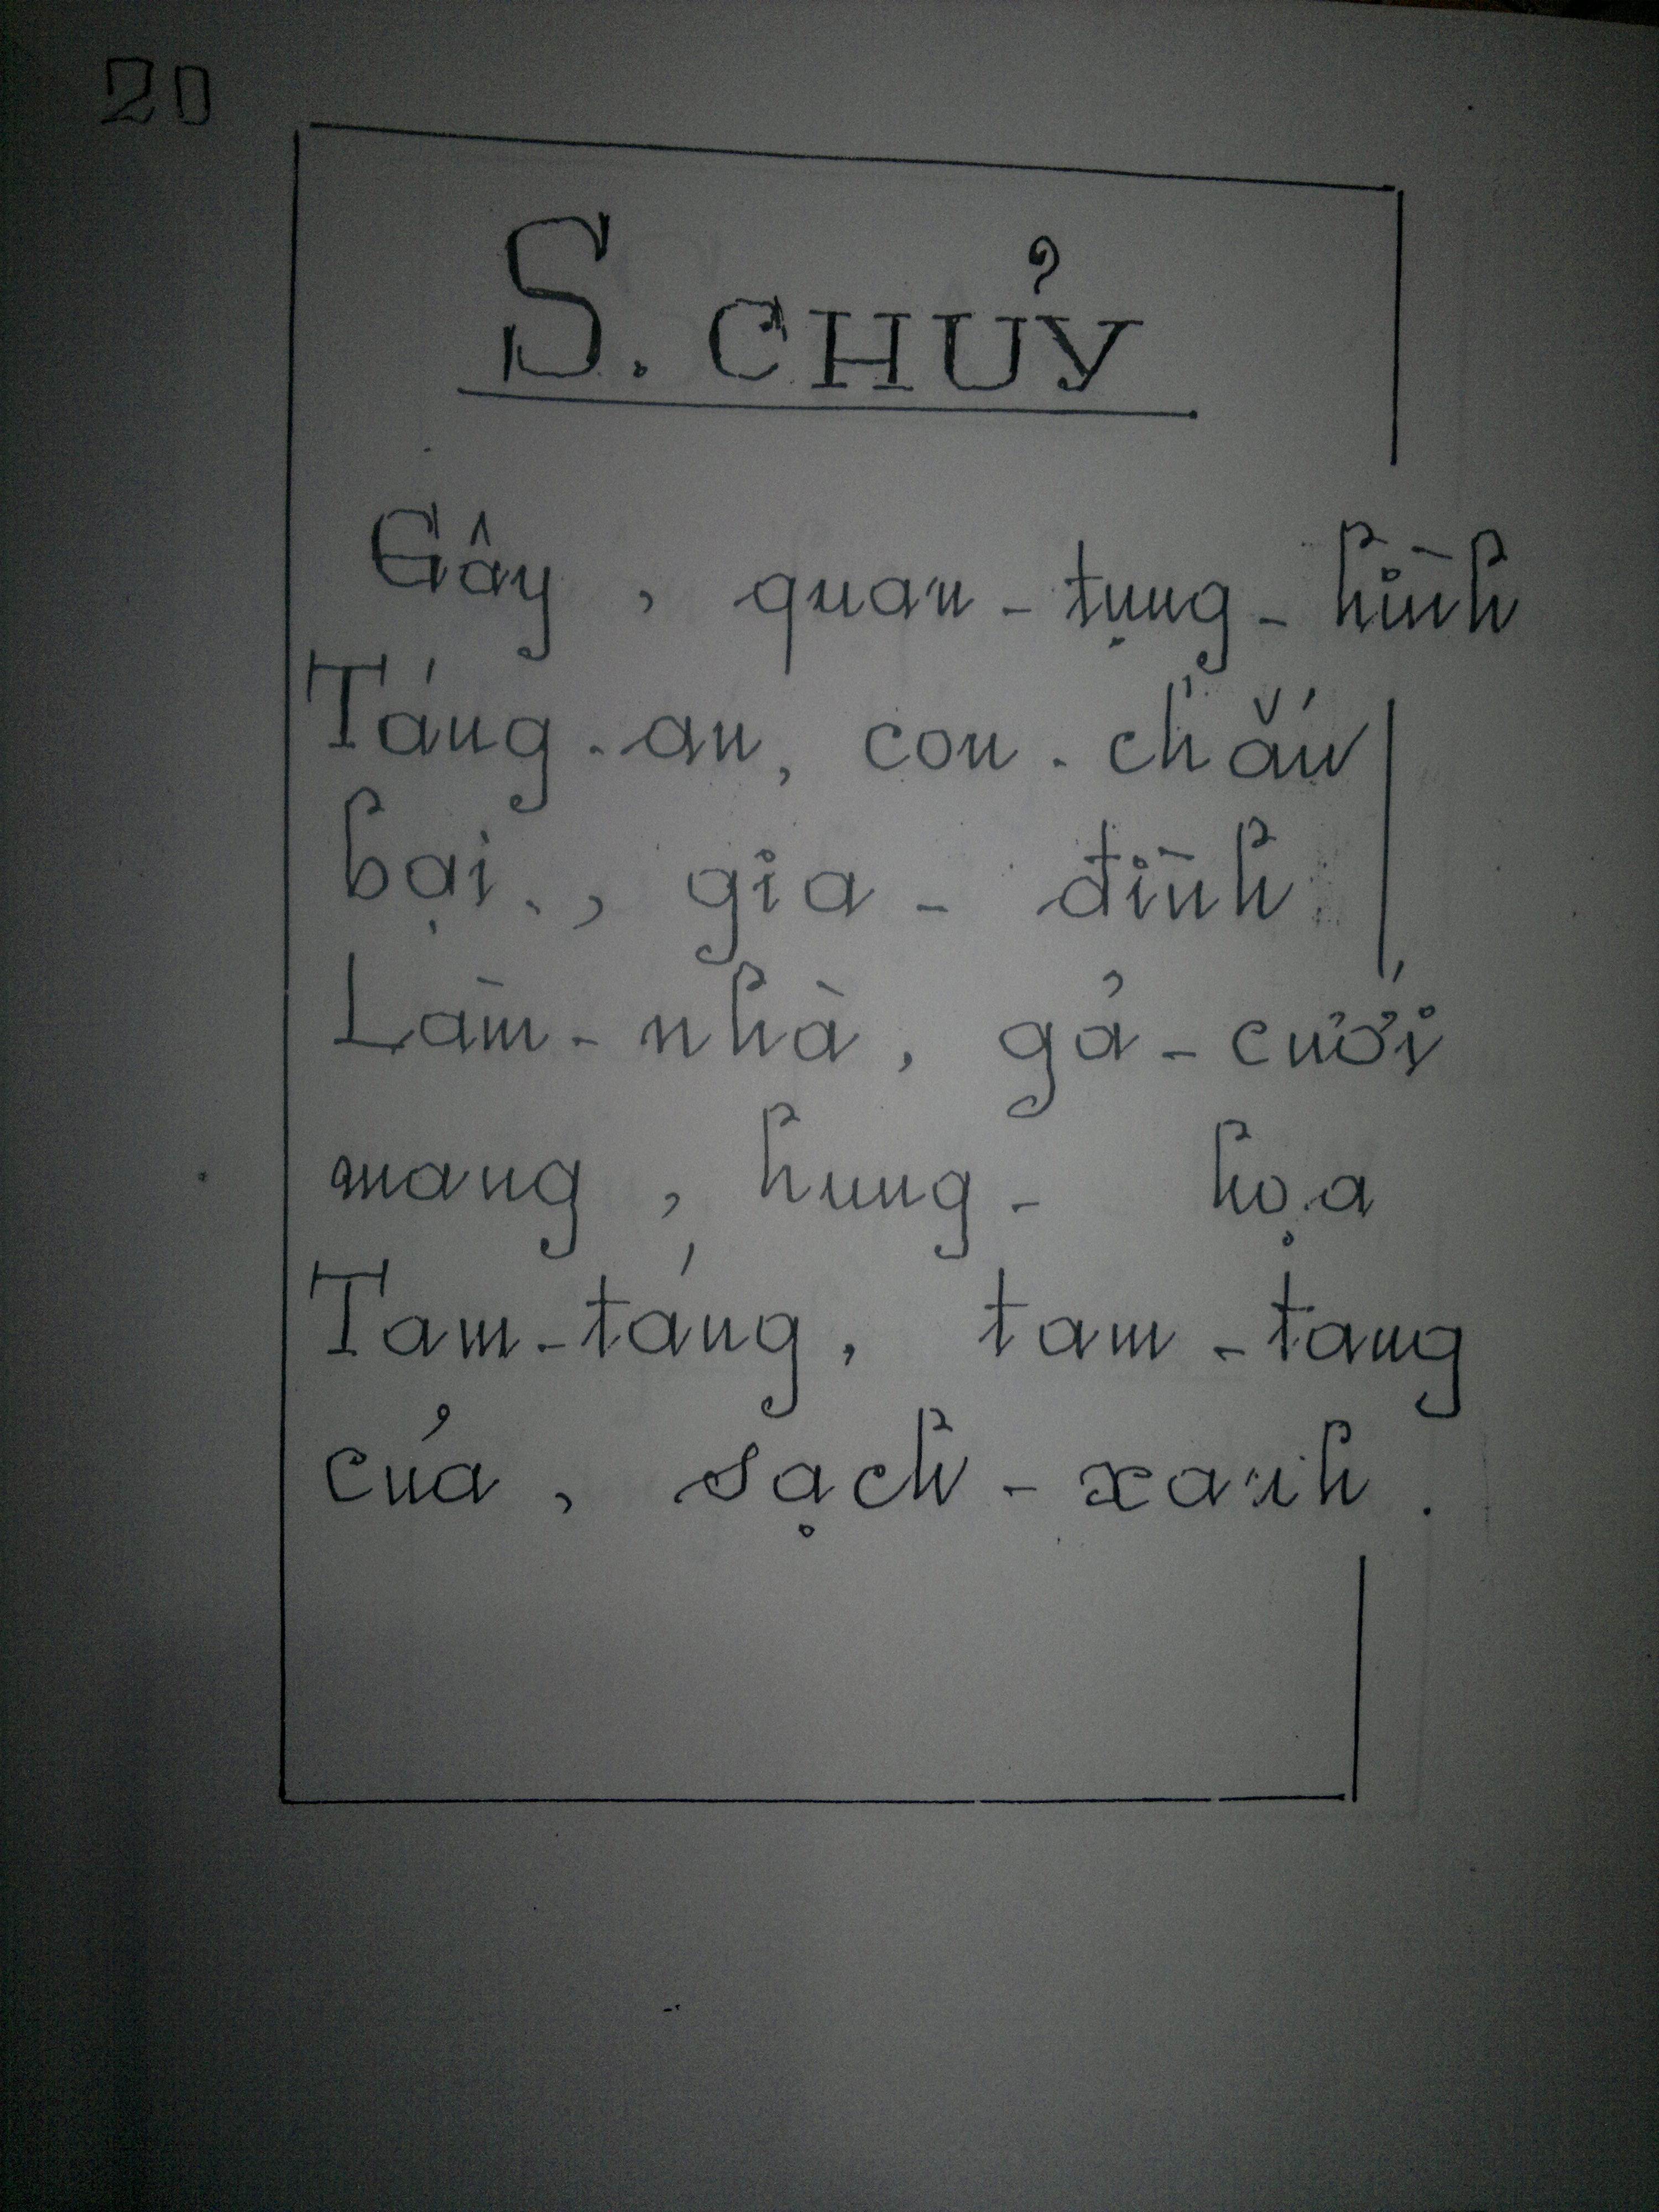 20
S. CHỦY
Gây, quan-tụng-hình
Táng-an, con.chắn
bại., gia-đình
Làm-nhà, gả-cưới
mang, hung-họa
Tam-táng, tam-tang
của, sạch-xanh.